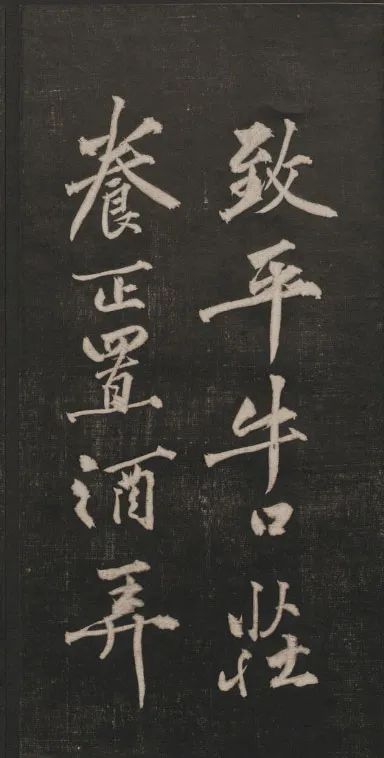 致平牛口莊
養正置酒弄